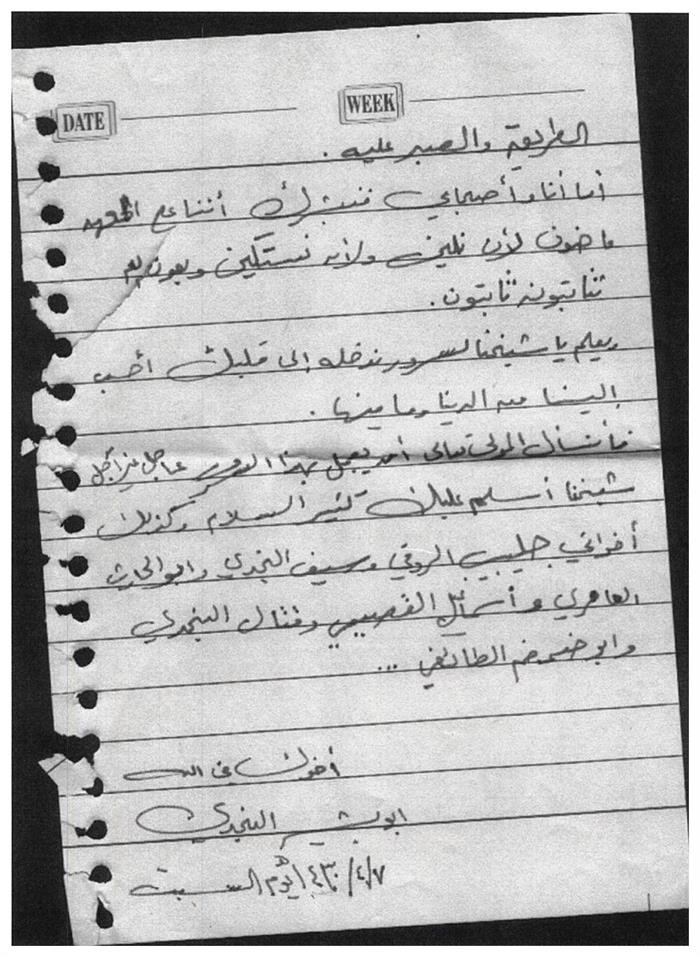 DATE WEEK
الطريق والصبر عليه .
أما أنا وأصحابي فنبشرك أننا على العهد
ماضون لن نلين ولن نستكين وبعون الله
ثابتون ثابتون .
يعلم يا شيخنا لسرور ندخله إلى قلبك أحب
إلينا من الدنيا وما فيها .
فأسأل المولى تعالى أن يعجل بهذا عاجل غير آجل
شيخنا أسلم عليك كثير السلام وكذلك
أخواني جليبيب الروقي وسيف النجدي وابو الحارث
العامري و القصيمي وقتال النجدي
وابو ضمضم الطائفي ...
أخوك في الله
ابو بشير النجدي
٧/٤/١٤٣٠ه يوم السبت